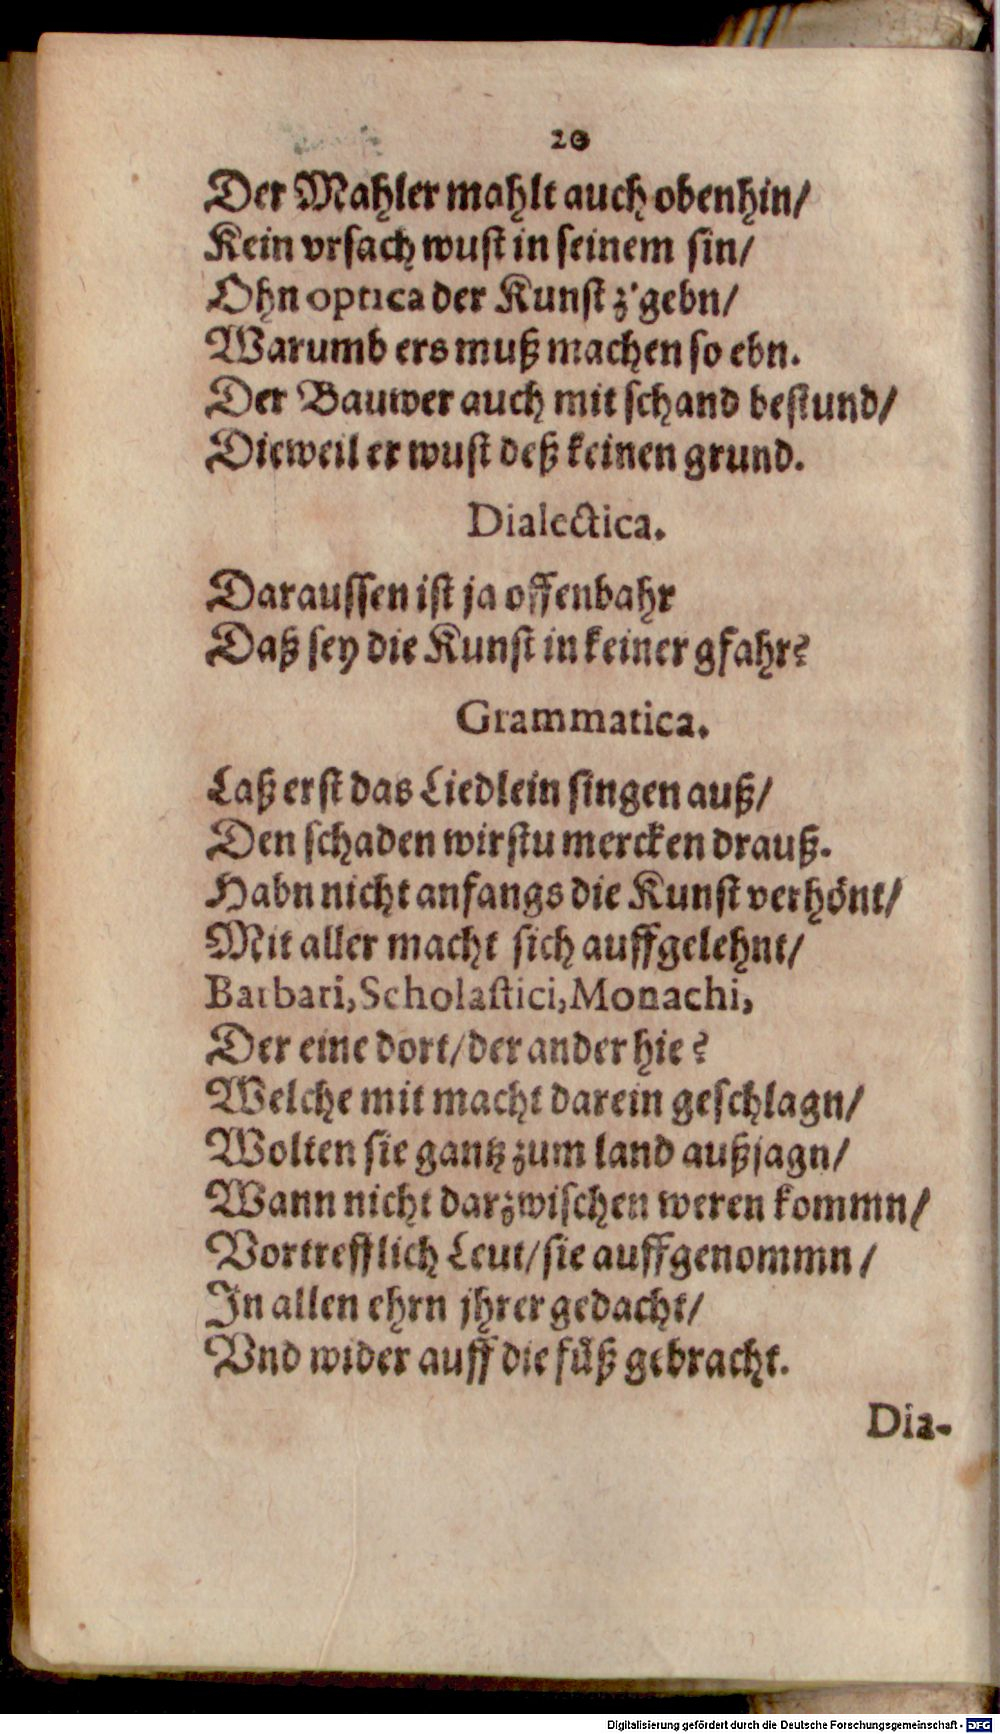 20
Der Mahler mahlt auch obenhin/
Kein vrsach wust in seinem sin/
Ohn optica der Kunst z'gebn/
Warumb ers muß machen so ebn.
Der Bauwer auch mit schand bestund/
Dieweil er wust deß keinen grund.
Dialectica.
Daraussen ist ja offenbahr
Daß sey die Kunst in keiner gfahr?
Grammatica.
Laß erst das Liedlein singen auß/
Den schaden wirstu mercken drauß.
Habn nicht anfangs die Kunst verhönt/
Mit aller macht sich auffgelehnt/
Barbari, Scholastici, Monachi,
Der eine dort/ der ander hie?
Welche mit macht darein geschlagn/
Wolten sie gantz zum land außjagn/
Wann nicht darzwischen weren kommn/
Vortrefflich Leut/ sie auffgenommn/
In allen ehrn jhrer gedacht/
Vnd wider auff die füß gebracht.
Dia-
Digitalisierung gefördert durch die Deutsche Forschungsgemeinschaft - DFG